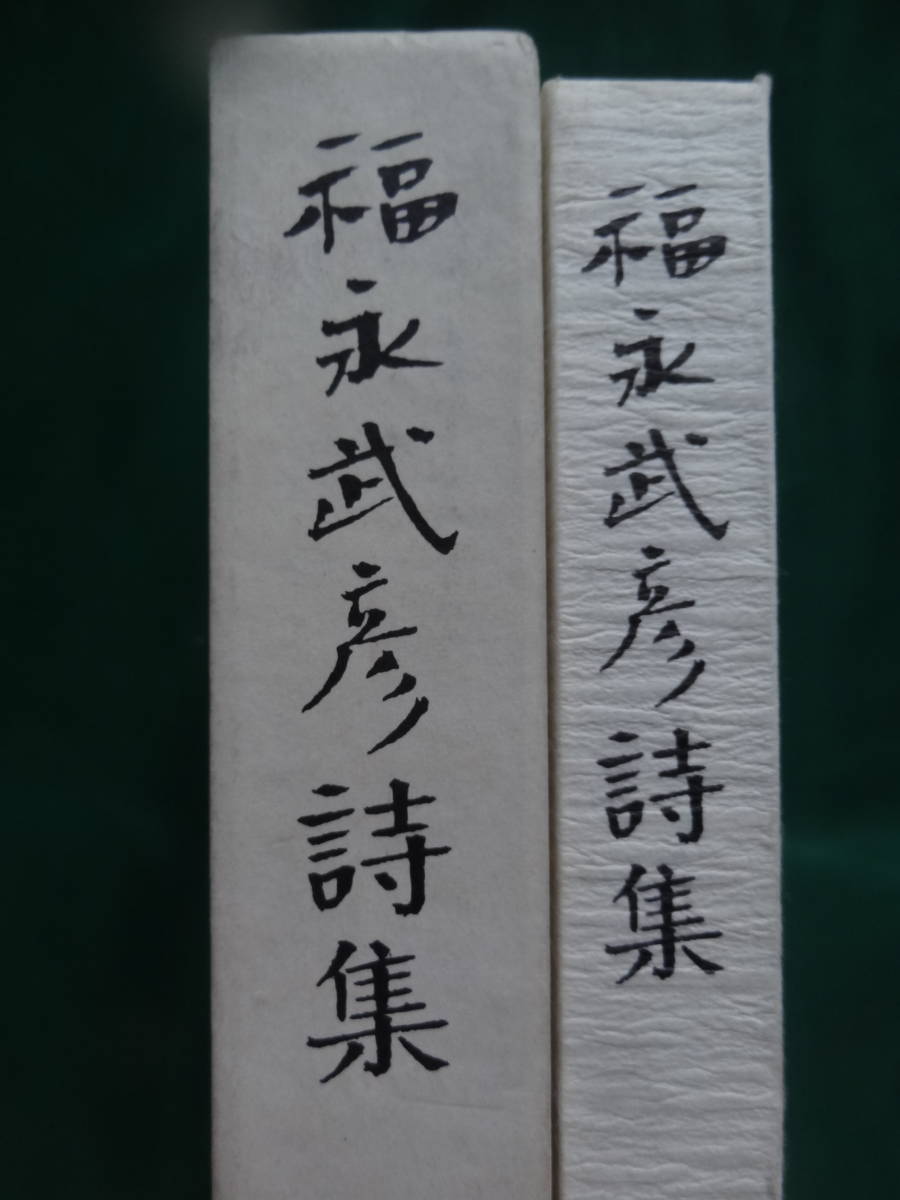 福永武彦詩集
福永武彦詩集